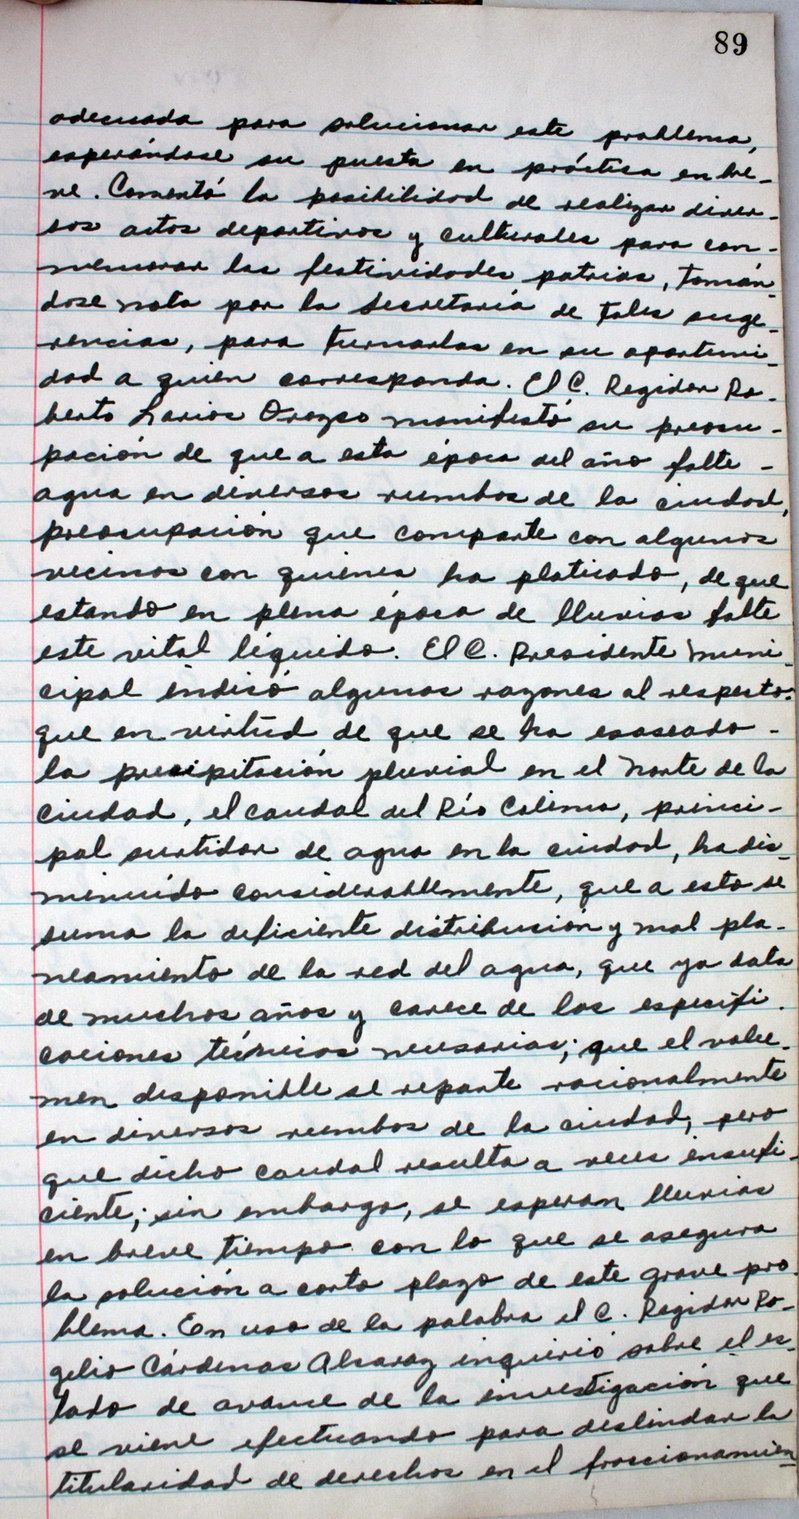 89
adecuada para solucionar este problema,
esperándose su puesta en práctica en bre-
ve. Comentó la posibilidad de realizar diver-
sos actos deportivos y culturales para con-
memorar las festividades patrias, tomán-
dose nota por la Secretaría de tales suge-
rencias, para turnarlas en su oportuni-
dad a quien corresponda. El C. Regidor Ro-
berto Larios Orozco manifestó su preocu-
pación de que a esta época del año falte -
agua en diversos rumbos de la ciudad,
preocupación que comparte con algunos
vecinos con quienes ha platicado, de que
estando en plena época de lluvias falte
este vital líquido. El C. Presidente Muni-
cipal indicó algunas razones al respecto:
que en virtud de que se ha escaseado -
la precipitación pluvial en el Norte de la
ciudad, el caudal del Río Colima, princi-
pal surtidor de agua en la ciudad, ha dis-
minuído considerablemente, que a esto se
suma la deficiente distribución y mal pla-
neamiento de la red del agua, que ya data
de muchos años y carece de las especifi-
caciones técnicas necesarias; que el volu-
men disponible se reparte racionalmente
en diversos rumbos de la ciudad, pero
que dicho caudal resulta a veces insufi-
ciente; sin embargo, se esperan lluvias
en breve tiempo con lo que se asegura
la solución a corto plazo de este grave pro-
blema. En uso de la palabra el C. Regidor Ro-
gelio Cárdenas Alcaraz inquirió sobre el es-
tado de avance de la investigación que
se viene efectuando para deslindar la
titularidad de derechos en el fraccionamien-